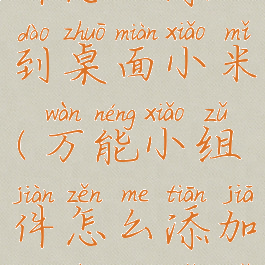 dào zhuō miàn xiǎo mǐ
到桌面小米
wàn néng xiǎo zǔ
(万能小组
jiàn zěn me tiān jiā
件怎么添加